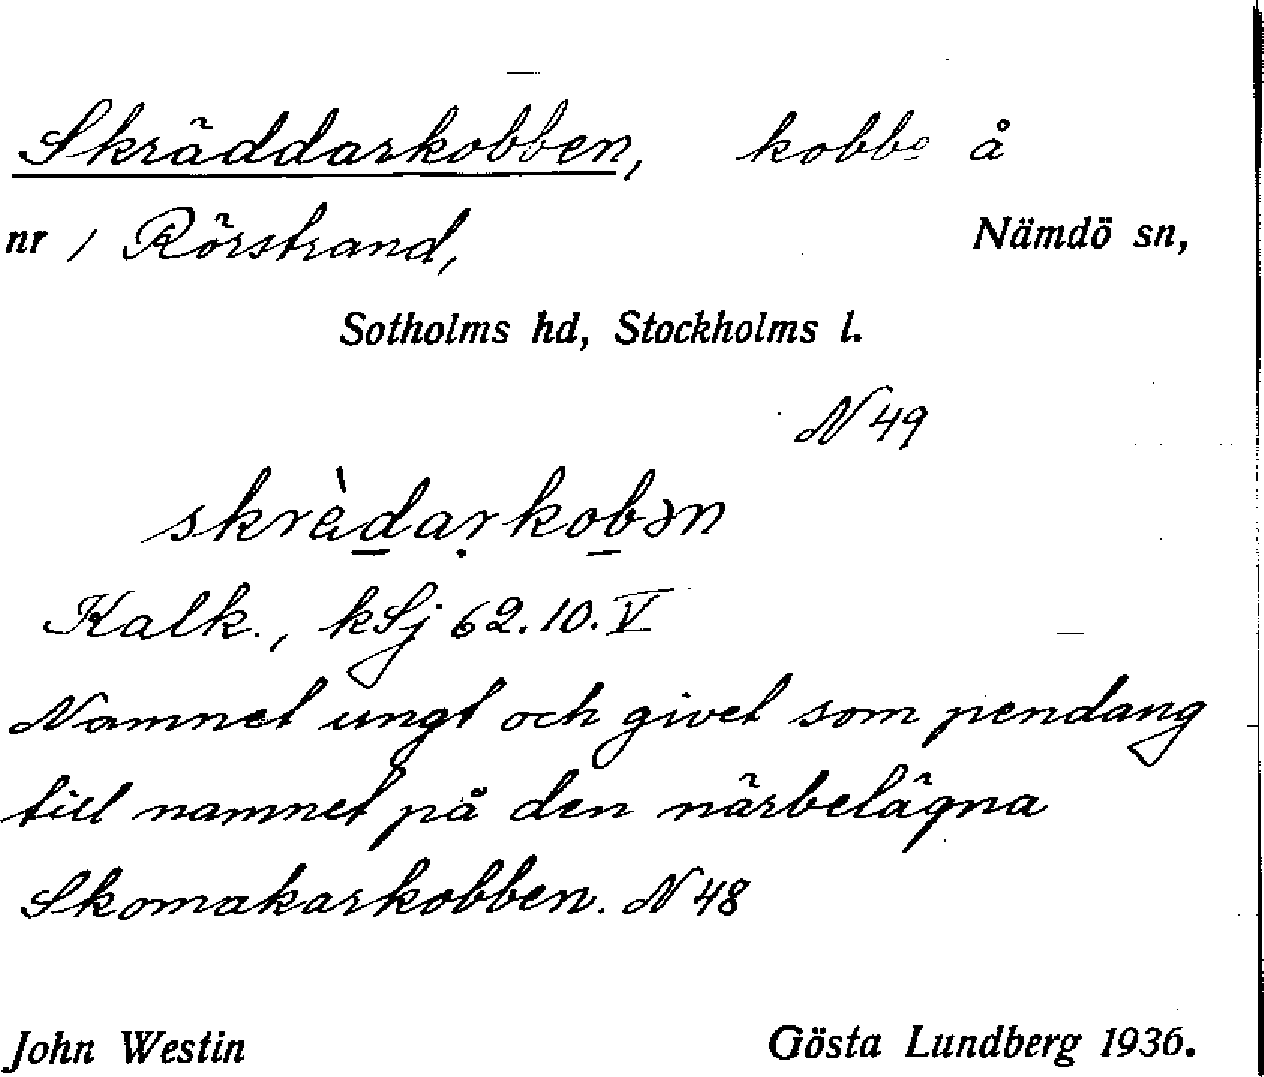 Skräddarkobben, kobbe å
nr 1 Rörstrand, Nämdö sn,
Sotholms hd, Stockholms l.
N 49
skrädarkobən
Kalk., kSj 62.10.V
Namnet ungt och givet som pendang
till namnet på den närbelägna
Skomakarkobben. N 48
John Westin Gösta Lundberg 1936.